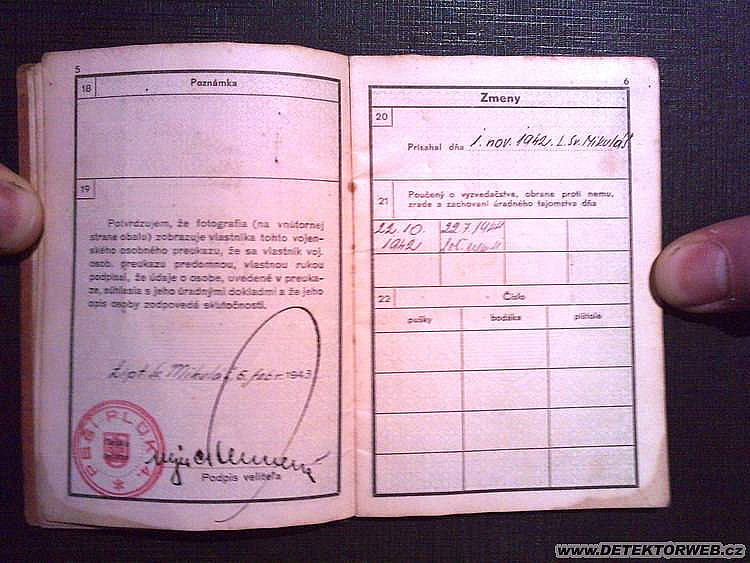 5
18
Poznámka
19
Potvrdzujem, že fotografia (na vnútornej
strane obalo) zobrazuje vlastníka tohto vojen-
ského osobného preukazu, že sa vlastník voj.
osob. preukazu predomnou, vlastnou rukou
podpísal, že údaje o osobe, uvedené v preuka-
ze, súhlasia s jeho úradnými dokladmi a že jeho
opis osoby zodpovedá skutočnosti.
Lipt. Sv. Mikuláš 5. febr. 1943
PEŠÍ PLUK 4
Podpis veliteľa
6
Zmeny
20
Prisahal dňa 1. nov. 1942 L. Sv. Mikuláš
21
Poučený o vyzvedačstve, obrane proti nemu,
zrade a zachovaní úradného tajomstva dňa
22. 10. 22. 7. 1944
1942
22
Číslo
pušky bodáka pištole
www.DETEKTORWEB.cz